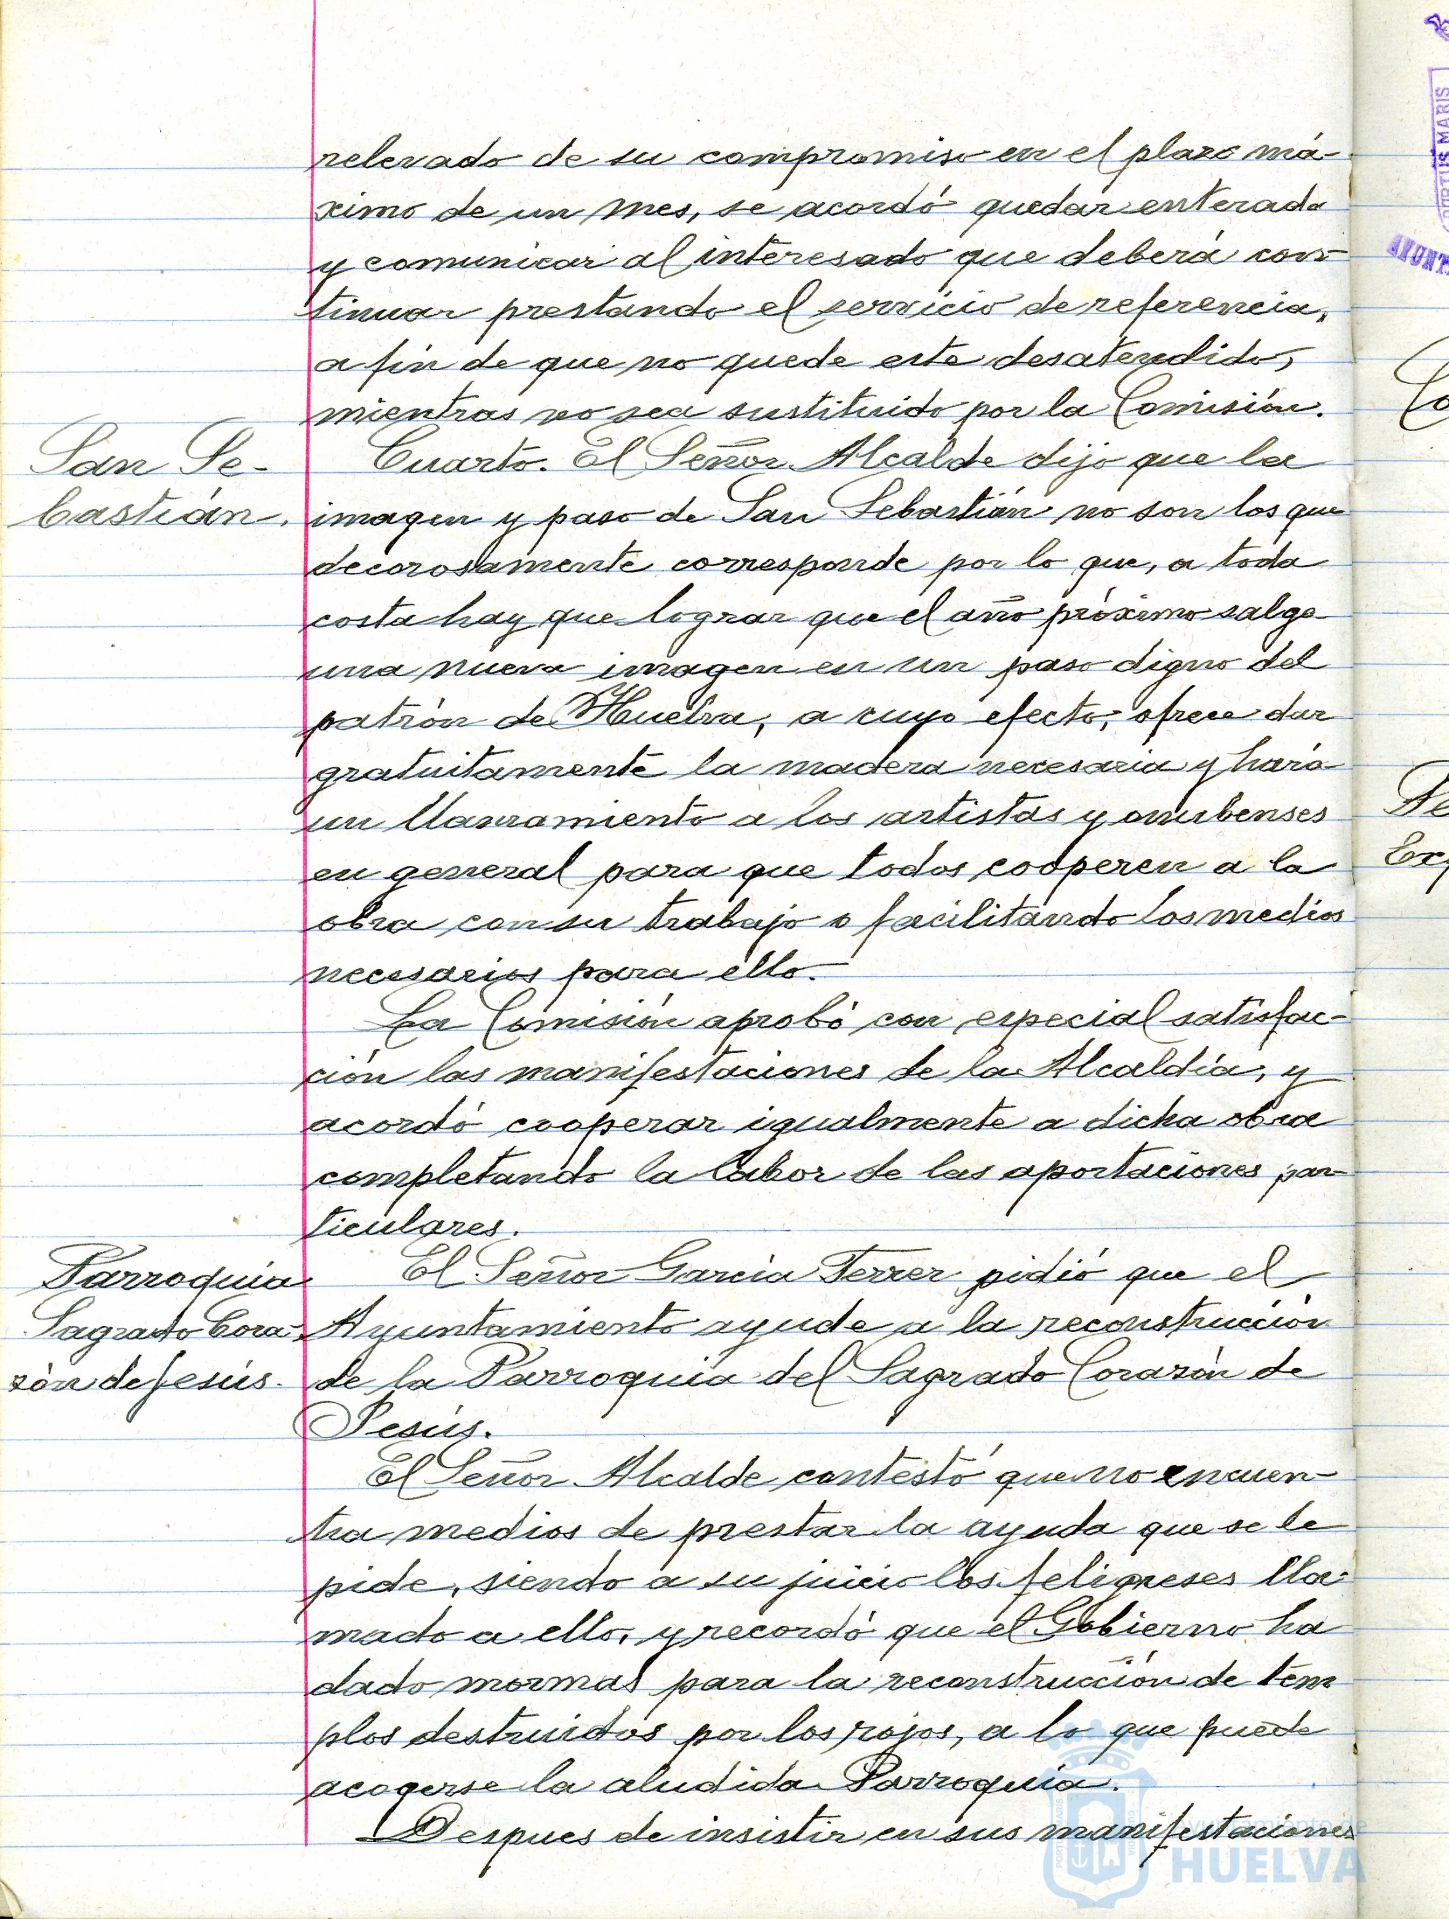 relevado de su compromiso en el plazo má-
ximo de un mes, se acordó quedar enterado
y comunicar al interesado que deberá con-
tinuar prestando el servicio de referencia,
a fin de que no quede este desatendido,
mientras no sea sustituido por la Comisión.
San Se-
bastián.
Cuarto. El Señor Alcalde dijo que la
imagen y paso de San Sebastián no son los que
decorosamente corresponde por lo que, a toda
costa hay que lograr que el año próximo salga
una nueva imagen en un paso digno del
patrón de Huelva, a cuyo efecto, ofrece dar
gratuitamente la madera necesaria y hará
un llamamiento a los artistas y onubenses
en general para que todos cooperen a la
obra con su trabajo o facilitando los medios
necesarios para ello.
La Comisión aprobó con especial satisfac-
ción las manifestaciones de la Alcaldía, y
acordó cooperar igualmente a dicha obra
completando la labor de las aportaciones par-
ticulares.
Parroquia
Sagrado Cora-
zón de Jesús.
El Señor García Ferrer pidió que el
Ayuntamiento ayude a la reconstrucción
de la Parroquia del Sagrado Corazón de
Jesús.
El Señor Alcalde contestó que no encuen-
tra medios de prestar la ayuda que se le
pide, siendo a su juicio los feligreses lla-
mado a ello, y recordó que el Gobierno ha
dado mormas para la reconstrucción de tem
plos destruidos por los rojos, a lo que puede
acogerse la aludida Parroquia.
Despues de insistir en sus manifestaciones
HUELVA